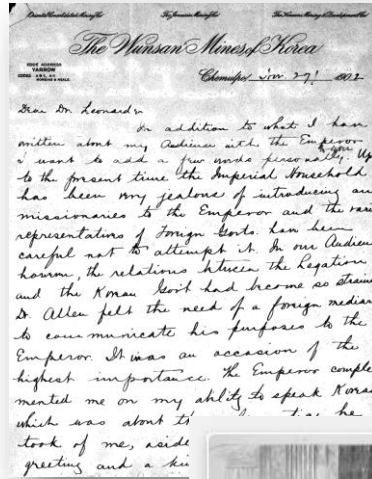 Oriental Consolidated Mining Co.
The Wunsan Mines of Korea
CODE ADDRESS
YARROW
Chemulpo, Nov. 27! 1902
Dear Dr. Leonard:
In addition to what I have
written about my Audience with the Emperor
I want to add a few words personally. Up
to the present time the Imperial Household
has been very jealous of introducing
missionaries to the Emperor and the
representatives of Foreign Govts. have been
careful not to attempt it. In our Audience
however, the relations between the Legation
and the Korean Gov't had become so
Dr. Allen felt the need of a foreign
to communicate his purposes to the
Emperor. It was an occasion of the
highest importance. The Emperor comple
mented me on my ability to speak
which was about he
took of me, aside
greeting and a